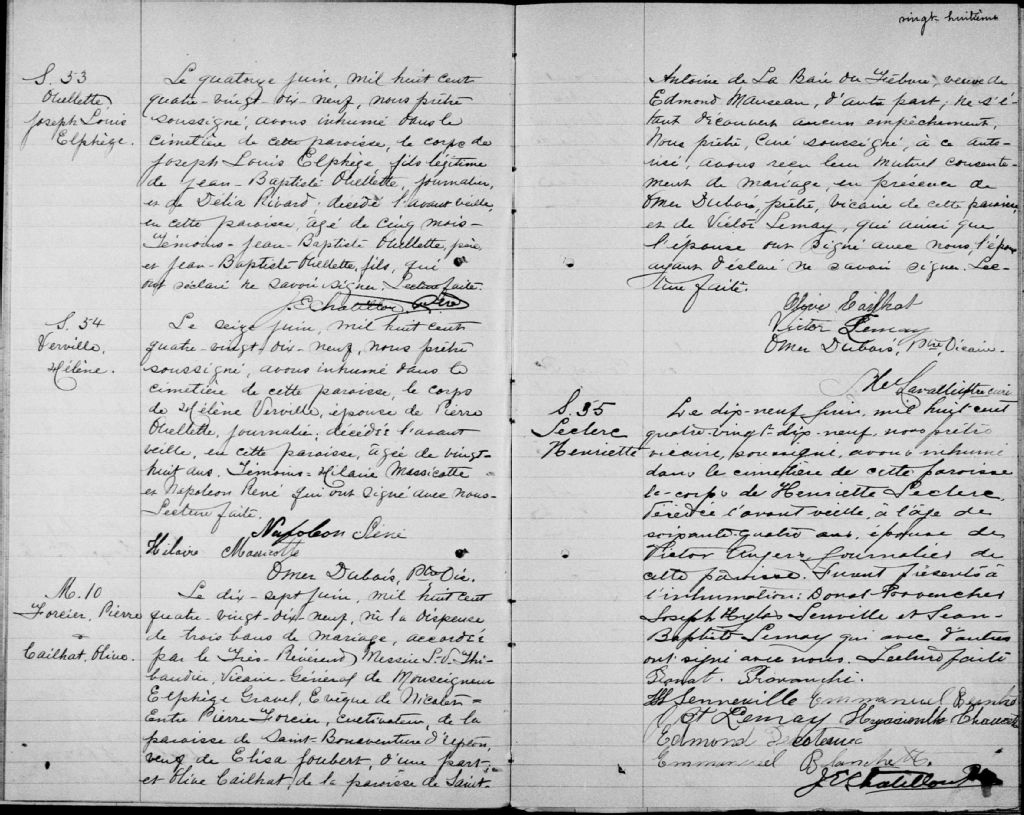 S. 53
Ouellette,
Joseph Louis
Elphège.
Le quatorze juin, mil huit cent
quatre-vingt-dix-neuf, nous prêtre
soussigné, avons inhumé dans le
cimetière de cette paroisse, le corps de
Joseph Louis Elphège, fils légitime
de Jean-Baptiste Ouellette, journalier,
et de Délia Rivard; décédé l'avant veille,
en cette paroisse, âgé de cinq mois-
Témoins-Jean-Baptiste Ouellette, père,
et Jean-Baptiste Ouellette, fils, qui
ont déclaré ne savoir signer. Lecture faite.
J. E. Chatillon, Ptre
S. 54
Verville,
Hélène.
Le seize juin, mil huit cent
quatre-vingt-dix-neuf, nous prêtre
soussigné, avons inhumé dans le
cimetière de cette paroisse, le corps
de Hélène Verville, épouse de Pierre
Ouellette, journalier; décédée l'avant
veille, en cette paroisse, âgée de vingt-
huit ans. Témoins-Hilaire Massicotte
et Napoléon René qui ont signé avec nous-
Lecture faite.
Napoleon René
Hilaire Massicotte
Omer Dubois, Ptre Vic.
M. 10
Forcier, Pierre
&
Cailhat, Olive.
Le dix-sept juin, mil huit cent
quatre-vingt-dix neuf, vu la dispense
de trois bans de mariage, accordée
par le Très-Révérend Messire S-. Thi-
baudier, Vicaire-Général de Monseigneur
Elphège Gravel, Evêque de Nicolet=
Entre Pierre Forcier, cultivateur, de la
paroisse de Saint-Bonaventure d'Upton,
veuf de Elisa Joubert, d'une part;
et Olive Cailhat, de la paroisse de Saint-
vingt-huitième
Antoine de La Baie du Febvre, veuve de
Edmond Manseau, d'autre part; ne s'é-
tant découvert aucun empêchement,
Nous prêtre, Curé soussigné, à ce auto-
risé, avons reçu leur mutuel consente-
ment de mariage, en présence de
Omer Dubois, prêtre, vicaire de cette paroisse
et de Victor Lemay, qui ainsi que
l'épouse ont signé avec nous, l'époux
ayant déclaré ne savoir signer. Lec-
ture faite.
Olive Cailhat
Victor Lemay
Omer Dubois, Ptre, Vicaire.
Lavallée Ptre curé
S. 55
Leclerc
Henriette
Le dix-neuf juin, mil huit cent
quatre-vingt-dix-neuf, nous prêtre
vicaire, soussigné, avons inhumé
dans le cimetière de cette paroisse
le corps de Henriette Leclerc,
décédée l'avant veille, à l'âge de
soixante-quatre ans, épouse de
Victor Angers journalier de
cette paroisse. Furent présents à
l'inhumation: Donat Provencher
Joseph Hylas Senville et Jean-
Baptiste Lemay qui avec d'autres
ont signé avec nous. Lecture faite
Donat. Provanché.
Senneville Emmanuel
Bt Lemay Hyacinthe
Edmond
Emmanuel Blanchette
J E Chatillon Ptre